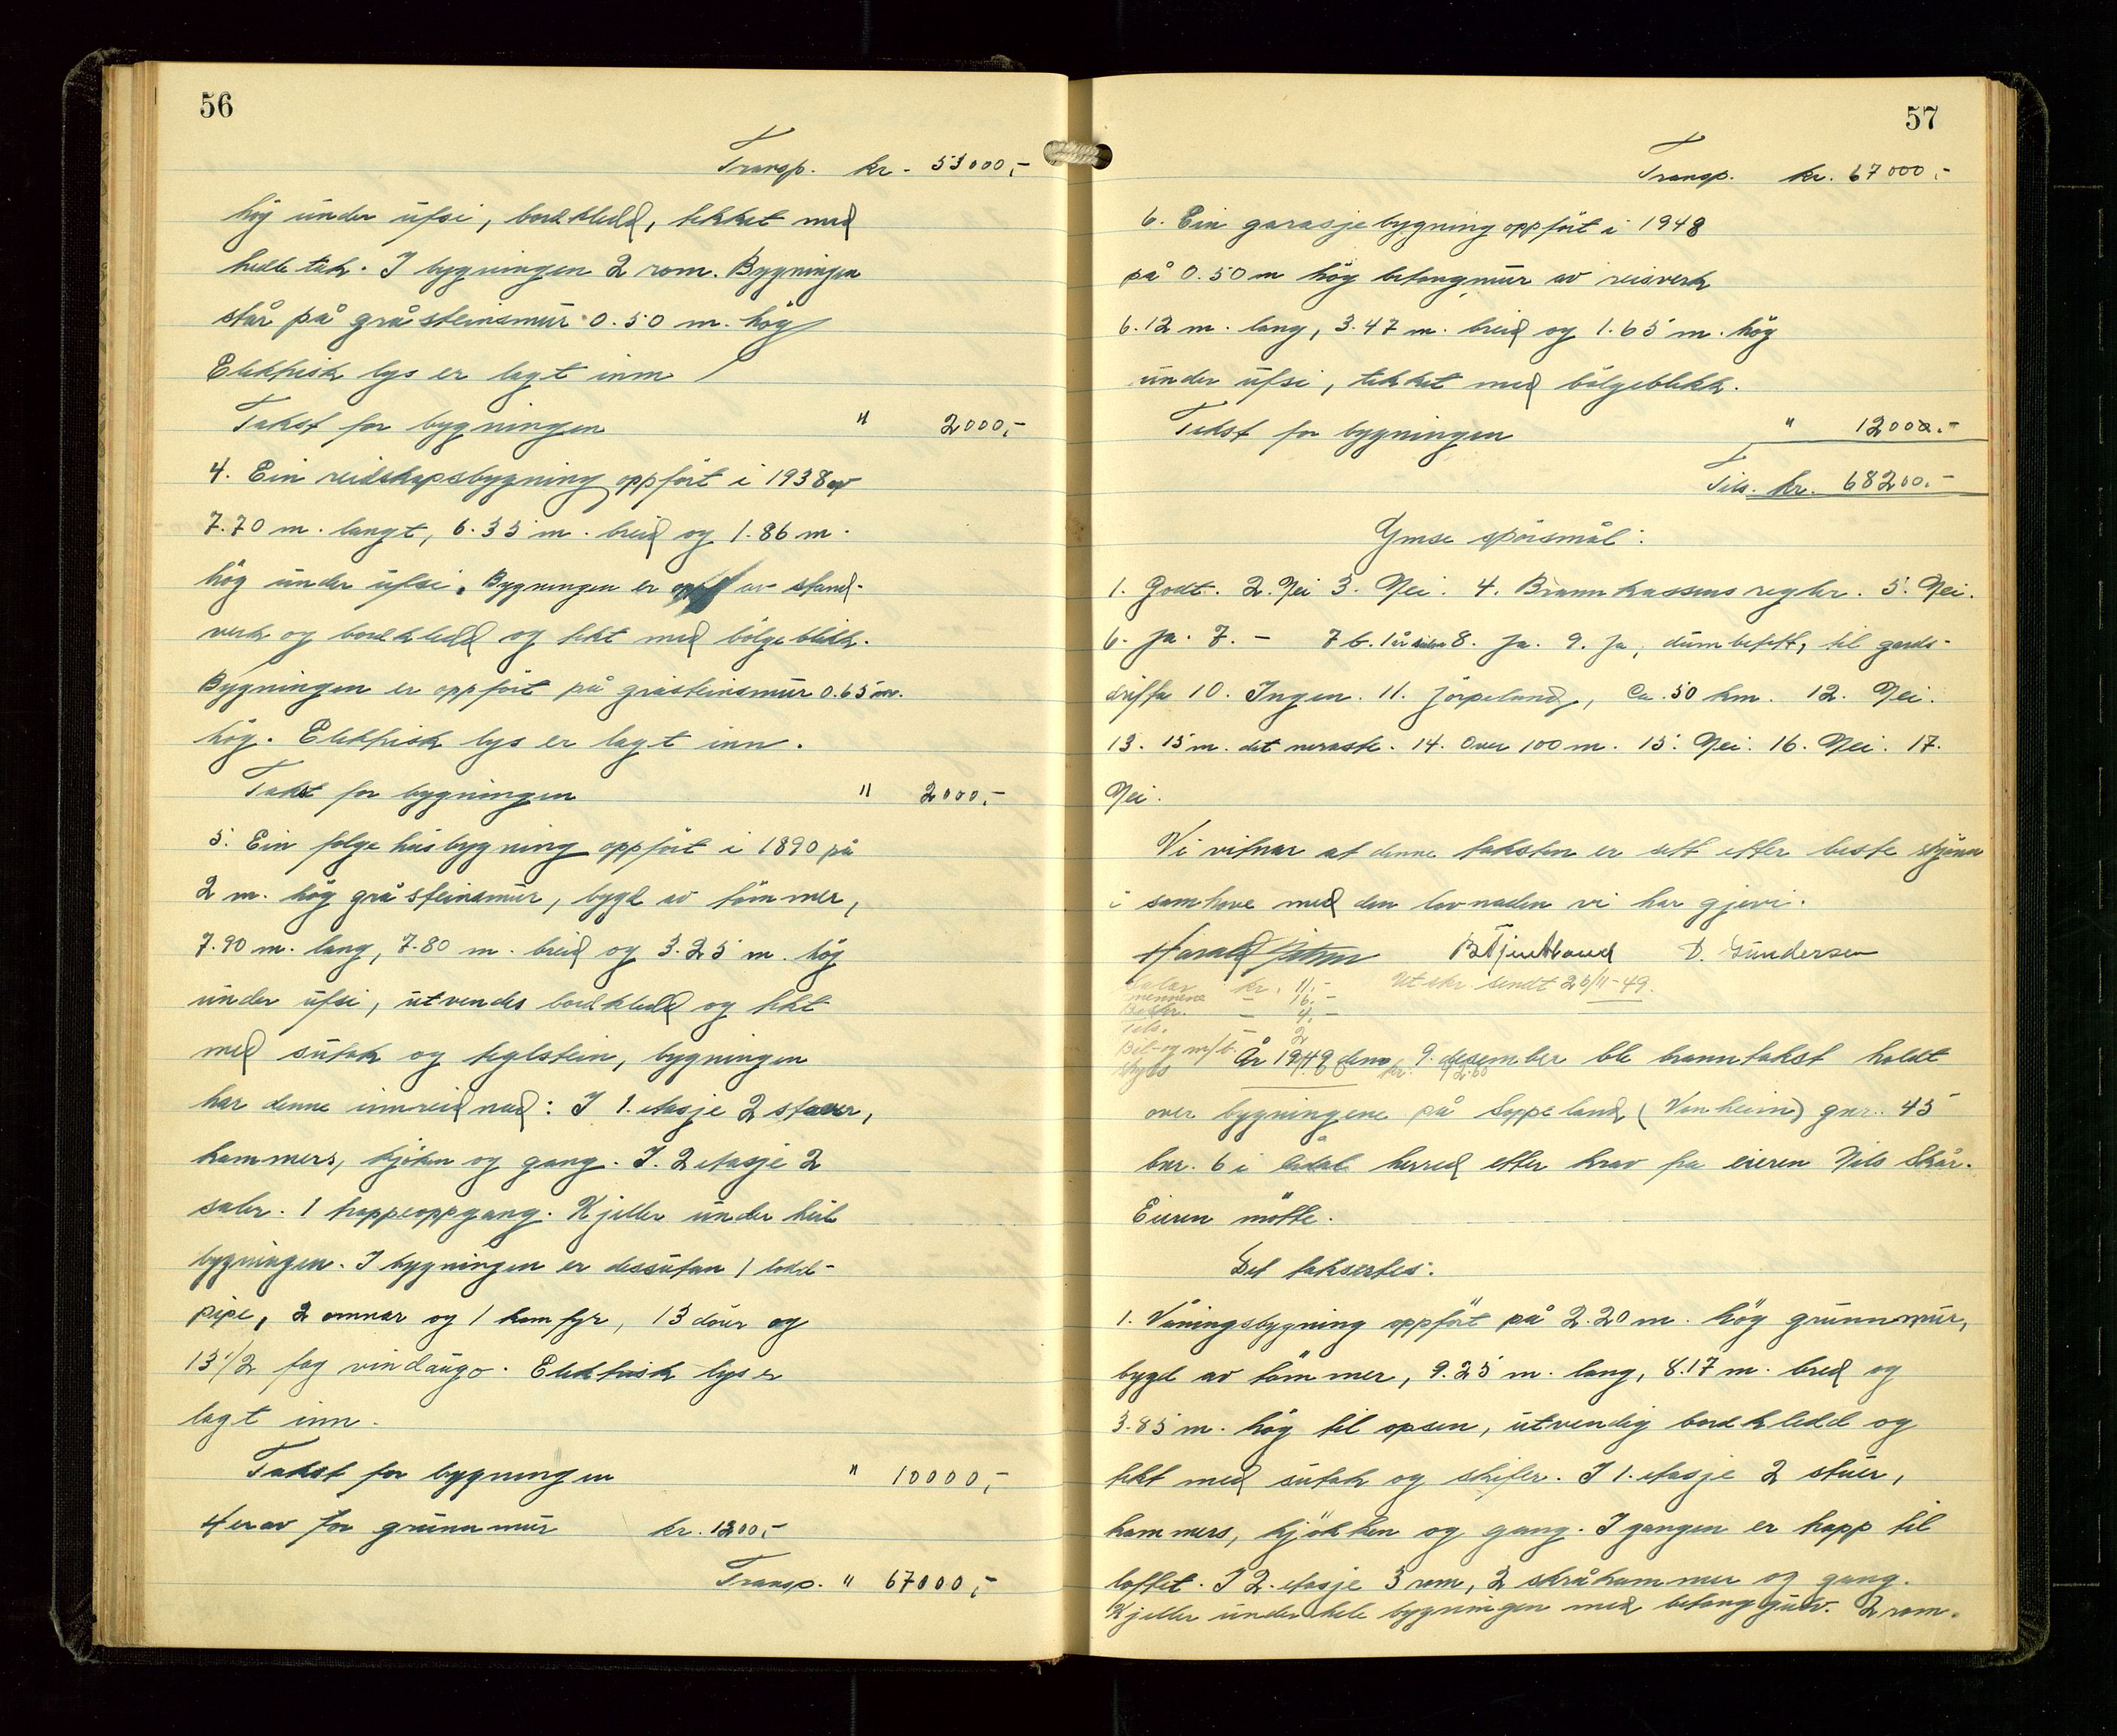 56
Transp. kr. 53000,-
høg under ufsi, bordkledd, tekket med
helle tak. I bygningen 2 rom. Bygningen
står på gråsteinsmur 0.50 m. høg
Elektrisk lys er lagt inn
Takst for bygningen " 2000,-
4. Ein reidskapsbygning oppført i 1938 av
7.70 m. langt, 6.35 m. breid og 1.86 m.
høg under ufsi. Bygningen er av stend-
verk og bordkledd og tekt med bølgeblikk.
Bygningen er oppført på gråsteinsmur 0.65 m.
høg. Elektrisk lys er lagt inn.
Takst for bygningen " 2000,-
5. Ein folgehusbygning oppført i 1890 på
2 m. høg gråsteinsmur, bygd av tømmer,
7.90 m. lang, 7.80 m. breid og 3.25 m. høg
under ufsi, utvendes bordkledd og tekt
med sutak og teglstein, bygningen
har denne innreidnad: I 1. etasje 2 stover,
kammers, kjøken og gang. I. 2 etasje 2
saler. 1 trappeoppgang. Kjeller under heile
bygningen. I bygningen er dessutan 1 lodd-
pipe, 2 omnar og 1 komfyr, 13 dører og
13 1/2 fag vindaugo. Elektrisk lys er
lagt inn.
Takst for bygningen " 10000,-
Herav for grunnmur kr. 1200,-
Transp. " 67000,-
57
Transp. kr. 67000,-
6. Ein garasjebygning oppført i 1948
på 0.50 m høg betongmur av reisverk
6.12 m. lang, 3.47 m. breid og 1.65 m. høg
under ufsi, tekket med bølgeblikk.
Takst for bygningen " 1200.-
Tils. kr. 68200.-
Ymse spørsmål:
1. Godt. 2. Nei 3. Nei. 4. Brannkassens regler. 5. Nei.
6. Ja. 7. - 7 b. 1 år siden 8. Ja. 9. Ja, dømbesett, til gards-
drifta 10. Ingen. 11. Jørpeland, Ca. 50 km. 12. Nei.
13. 15 m. det neraste. 14. Over 100 m. 15. Nei. 16. Nei. 17.
Nei.
Vi vitnar at denne taksten er sett etter beste skjønn
i samhøve med den lovnaden vi har gjevi.
Harald B. Tjentland D. Gundersen
Salær kr. 11.- Utskr. sendt 26/11-49.
mennene - 16.-
- 4.-
Tils.
Bil- og m/b. 2
skyss kr.
År 1949 den 9. desember ble branntakst holdt
over bygningene på Soppeland (Vonheim) gnr. 45
bnr. 6 i herred etter krav fra eieren Nils Skår.
Eieren møtte.
Det taksertes:
1. Våningsbygning oppført på 2.20 m. høg grunnmur,
bygd av tømmer, 9.25 m. lang, 8.17 m. bred og
3.85 m. høg til opsen, utvendig bordkledd og
tekt med sutak og skifer. I 1. etasje 2 stuer,
kammers, kjøkken og gang. I gangen er trapp til
loftet. I 2. etasje 3 rom, 2 skråkammer og gang.
Kjeller under hele bygningen med betonggulv. 2 rom.